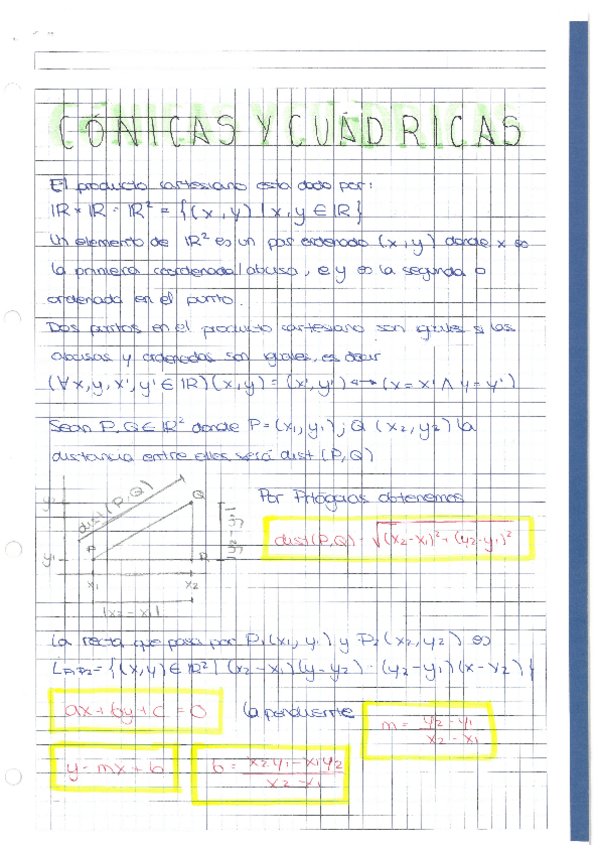 CÓNICAS Y CUÁDRICAS
El producto cartesiano esta dado por:
IR × IR = IR² = {(x,y) | x,y ∈ IR}
Un elemento de IR² es un par ordenado (x,y) donde x es
la primera coordenada/abcisa, e y es la segunda o
ordenada en el punto.
Dos puntos en el producto cartesiano son iguales si las
abcisas y ordenadas son iguales, es decir
(∀x,y,x',y' ∈ IR)(x,y) = (x',y') ↔ (x = x' ∧ y = y')
Sean P,Q ∈ IR² donde P = (x₁,y₁); Q (x₂,y₂) la
distancia entre ellos será dist (P,Q)
Por Pitágoras obtenemos
dist(P,Q) = √(x₂-x₁)² + (y₂-y₁)²
y₂
dist(P,Q)
Q
|y₂-y₁|
y₁
P
R
x₁
x₂
|x₂-x₁|
La recta que pasa por P₁(x₁,y₁) y P₂(x₂,y₂) es
L P₁P₂ = {(x,y) ∈ IR² | (x₂-x₁)(y-y₂) = (y₂-y₁)(x-x₂)}
ax + by + c = 0
la pendiente
m = y₂-y₁ / x₂-x₁
y = mx + b
b = x₂y₁-x₁y₂ / x₂-x₁